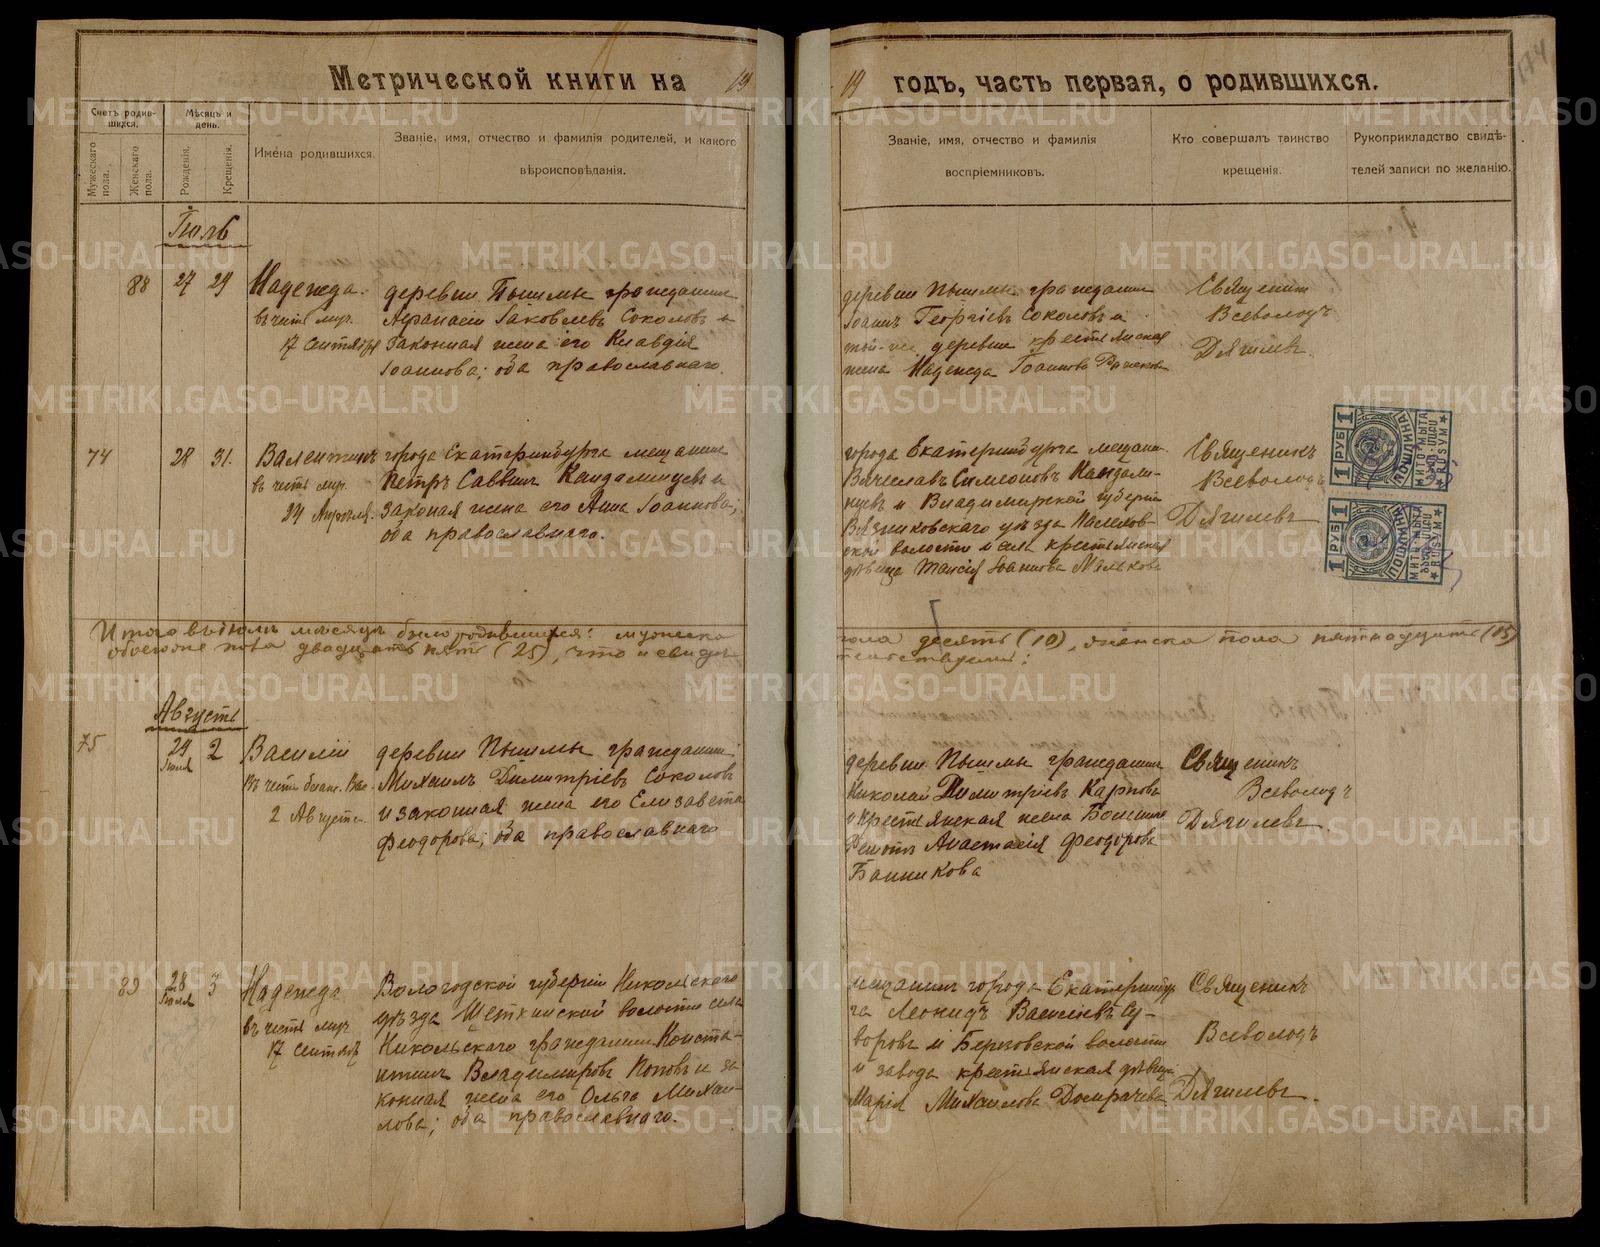 Метрической книги на 19
19 годъ, часть первая, о родившихся.
Счетъ родив-
шихся.
Мужескаго пола.
Женскаго пола.
Мѣсяцъ и
день.
Рожденія.
Крещенія.
Имена родившихся.
Званіе, имя, отчество и фамилія родителей, и какого
вѣроисповѣданія.
Званіе, имя, отчество и фамилія
воспріемниковъ.
Кто совершалъ таинство
крещенія.
Рукоприкладство свидѣ-
телей записи по желанію.
174
Іюль
88 27 29 Надежда.
въ честь муч.
17 Сентября
деревни Пышмы гражданинъ
Афанасій Іаковлевъ Соколовъ и
законная жена его Клавдія
Іоаннова; оба православнаго.
деревни Пышмы гражданинъ
Іоаннъ Георгіевъ Соколовъ и
той-же деревни крестьянская
жена Надежда Іоаннова
Священникъ
Всеволодъ
Дягилевъ
74 28 31. Валентинъ
въ честь муч.
24 Апрѣля.
города Екатеринбурга мещанинъ
Петръ Саввинъ Кандалинцевъ и
законая жена его Анна Іоаннова;
оба православнаго.
города Екатеринбурга мещани-
Вячеславъ Симеоновъ Кандали-
нцевъ и Владимирской губерніи
Вязниковскаго уѣзда Палехов-
ской волости и села крестьянская
дѣвица Таисія Іоаннова
Священникъ
Всеволодъ
Дягилевъ
1 РУБ 1
ПОШЛИНА
1 РУБ 1
ПОШЛИНА
Итого въ Іюлѣ мѣсяцѣ было родившихся: мужеска
пола десять (10), женска пола пятнадцать (15)
обоего же пола двадцать пять (25), что и свидѣ-
тельствуемъ:
Августъ
75 29 Іюля 2 Василій
Въ честь блаж. Вас.
2 Августа.
деревни Пышмы гражданинъ
Михаилъ Димитріевъ Соколовъ
и законная жена его Елизавета
Феодорова; оба православнаго
деревни Пышмы гражданинъ
Николай Димитріевъ Карповъ
и крестьянская жена
Анастасія Феодорова
Банникова
Священникъ
Всеволодъ
Дягилевъ.
89 28 Іюля 3 Надежда
въ честь муч.
17 Сентябр
Вологодской губерніи Никольскаго
уѣзда волости села
Никольскаго гражданинъ Конста-
нтинъ Владимировъ Поповъ и за
конная жена его Ольга Михаи-
лова; оба православнаго.
мещанинъ города Екатеринбур
га Леонидъ Васильевъ Су-
воровъ и Березовской волости
и завода крестьянская дѣвица
Марія Михаилова
Священникъ
Всеволодъ
Дягилевъ.
METRIKI.GASO-URAL.RU